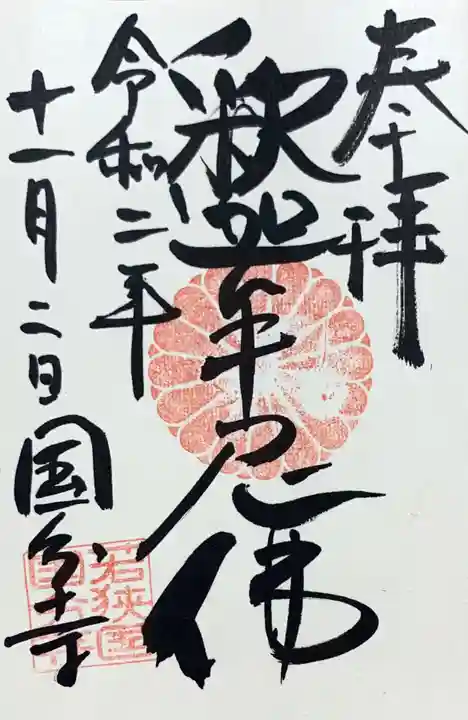 奉拝
釈迦牟尼佛
令和二年
十一月二日国分寺
若狭国
国分寺